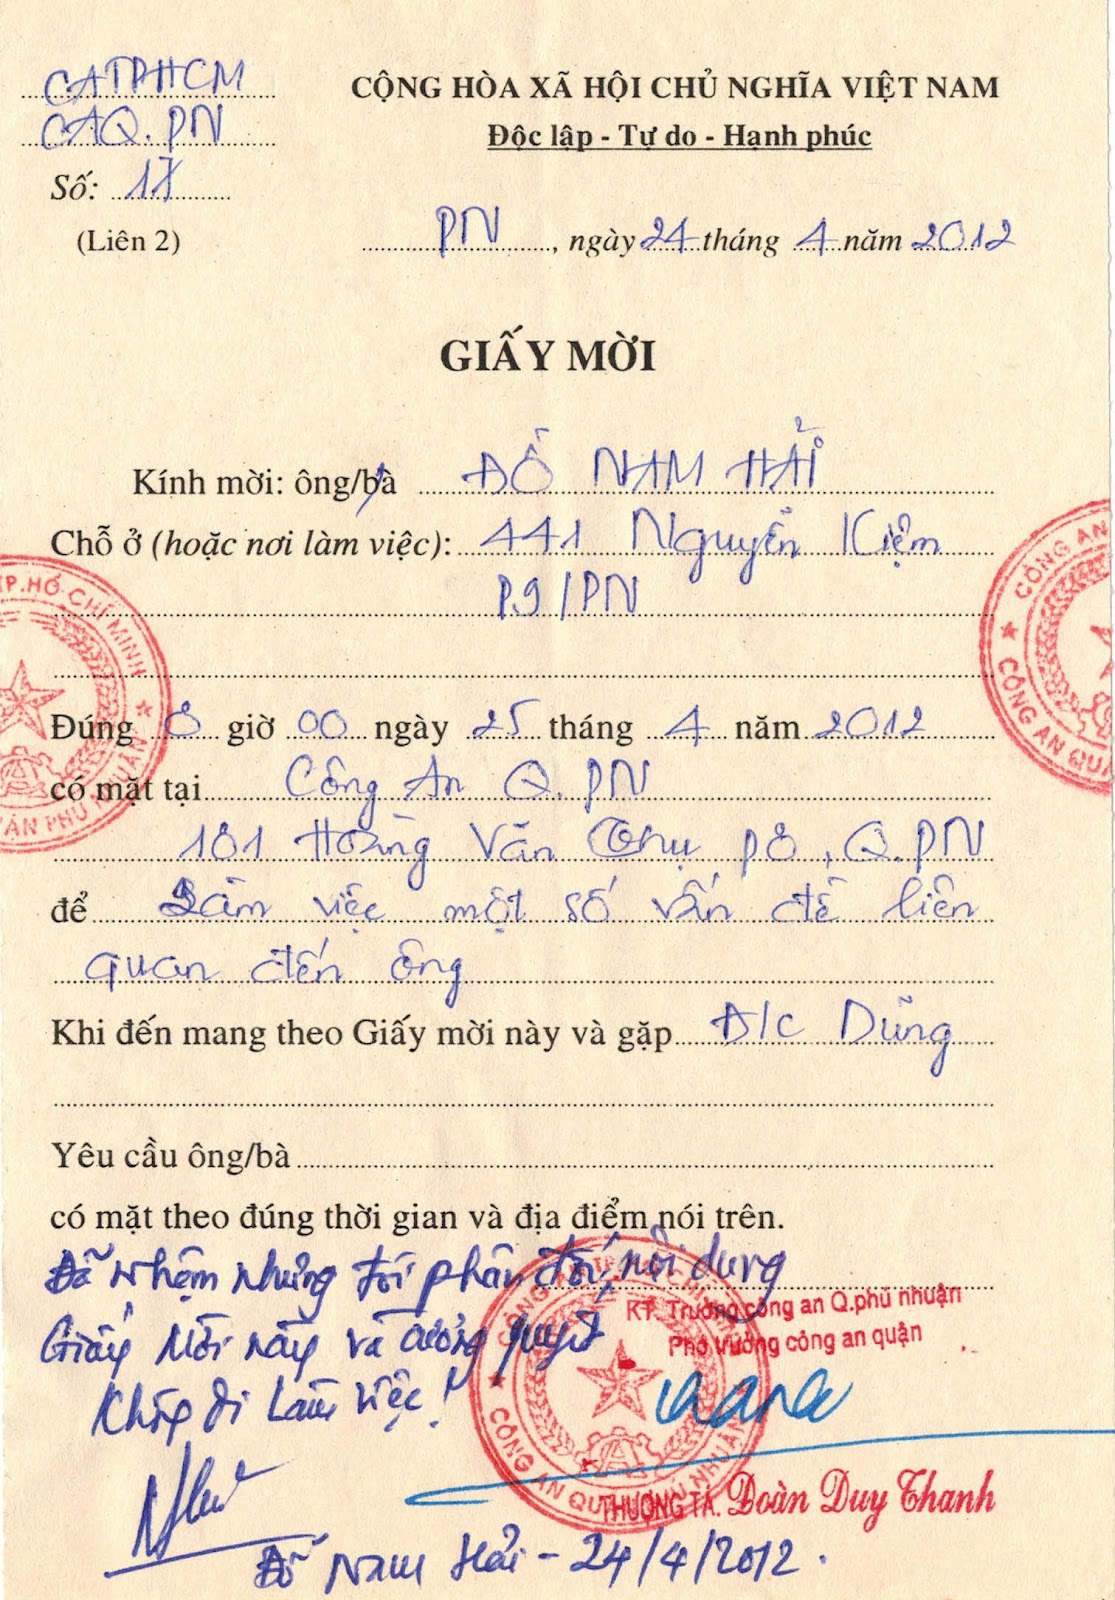 CATPHCM
CAQ. PN
Số: 17
(Liên 2)
CỘNG HÒA XÃ HỘI CHỦ NGHĨA VIỆT NAM
Độc lập - Tự do - Hạnh phúc
PN, ngày 24 tháng 4 năm 2012
GIẤY MỜI
Kính mời: ông/bà ĐỖ NAM HẢI
Chỗ ở (hoặc nơi làm việc): 441 Nguyễn Kiệm
P9/PN
TP.HỒ CHÍ MINH
CÔNG AN
CÔNG AN QUẬN
Đúng 8 giờ 00 ngày 25 tháng 4 năm 2012
có mặt tại Công An Q. PN
181 Hoàng Văn Thụ P8, Q.PN
để Làm việc một số vấn đề liên
quan đến ông
Khi đến mang theo Giấy mời này và gặp Đ/c Dũng
Yêu cầu ông/bà
có mặt theo đúng thời gian và địa điểm nói trên.
Đã nhậm nhưng tôi phản đối nội dung
Giấy Mời này và cương quyết
Không đi làm việc!
KT. Trưởng công an Q.phú nhuận
Phó trưởng công an quận
THƯỢNG TÁ. Đoàn Duy Thanh
Đỗ Nam Hải - 24/4/2012.